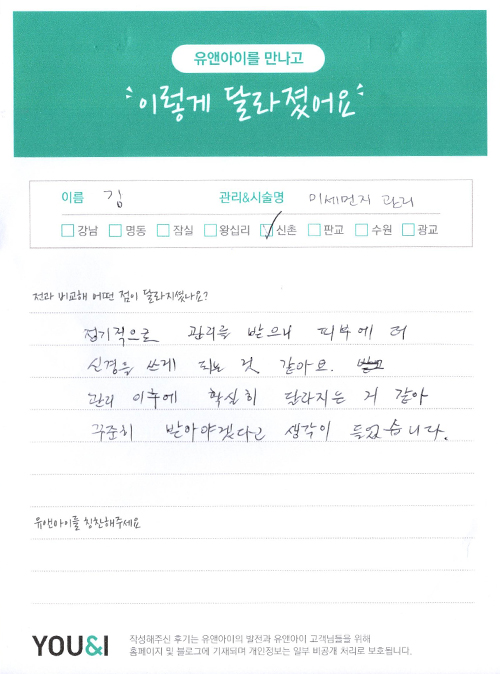 유앤아이를 만나고
이렇게 달라졌어요
이름 김 관리&시술명 미세먼지 관리
강남 명동 잠실 왕십리 신촌 판교 수원 광교
전과 비교해 어떤 점이 달라지셨나요?
정기적으로 관리를 받으니 피부에 더
신경을 쓰게 되는 것 같아요.
관리 이후에 확실히 달라지는 거 같아
꾸준히 받아야겠다고 생각이 들었습니다.
유앤아이를 칭찬해주세요
YOU&I
작성해주신 후기는 유앤아이의 발전과 유앤아이 고객님들을 위해
홈페이지 및 블로그에 기재되며 개인정보는 일부 비공개 처리로 보호됩니다.